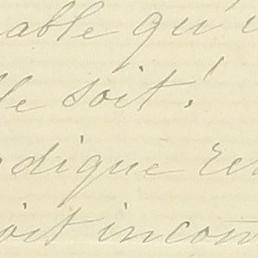 able qu'i
le soit!
ndique rer
oit incom